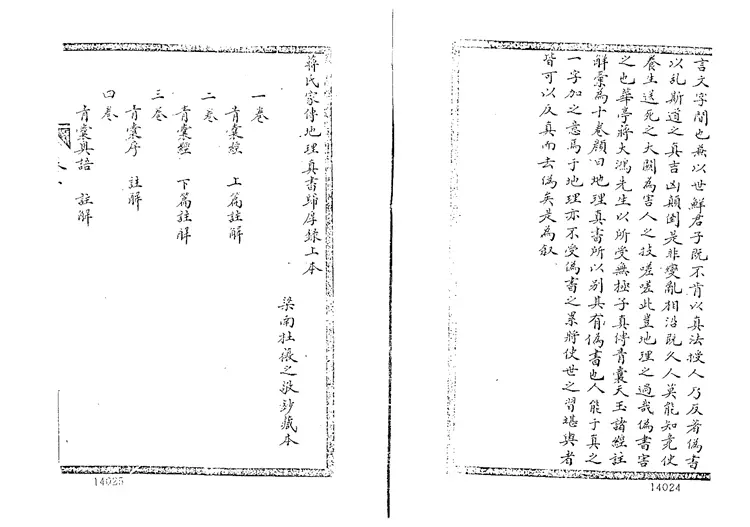 言文字間也無以世鮮君子既不肯以真法授人乃反著偽書
以乱斯道之真吉凶顛倒是非變亂相沿既久人莫能知竟使
養生送死之大關為害人之技嗟嗟此豈地理之過哉偽書害
之也華亭蔣大鴻先生以所受無極子真傳青囊天玉諸經註
觧彙為十卷顏曰地理真書所以别其有偽書也人能于真之
一字加之意焉于地理亦不受偽書之累將使世之習堪輿者
皆可以反真而去偽矣是為叙
14024
蒋氏家傳地理真書歸厚錄上本
梁南壮張之㧑抄藏本
一卷
青囊經 上篇註觧
二卷
青囊經 下篇註觧
三卷
青囊序 註觧
四卷
青囊奥語 註觧
14025